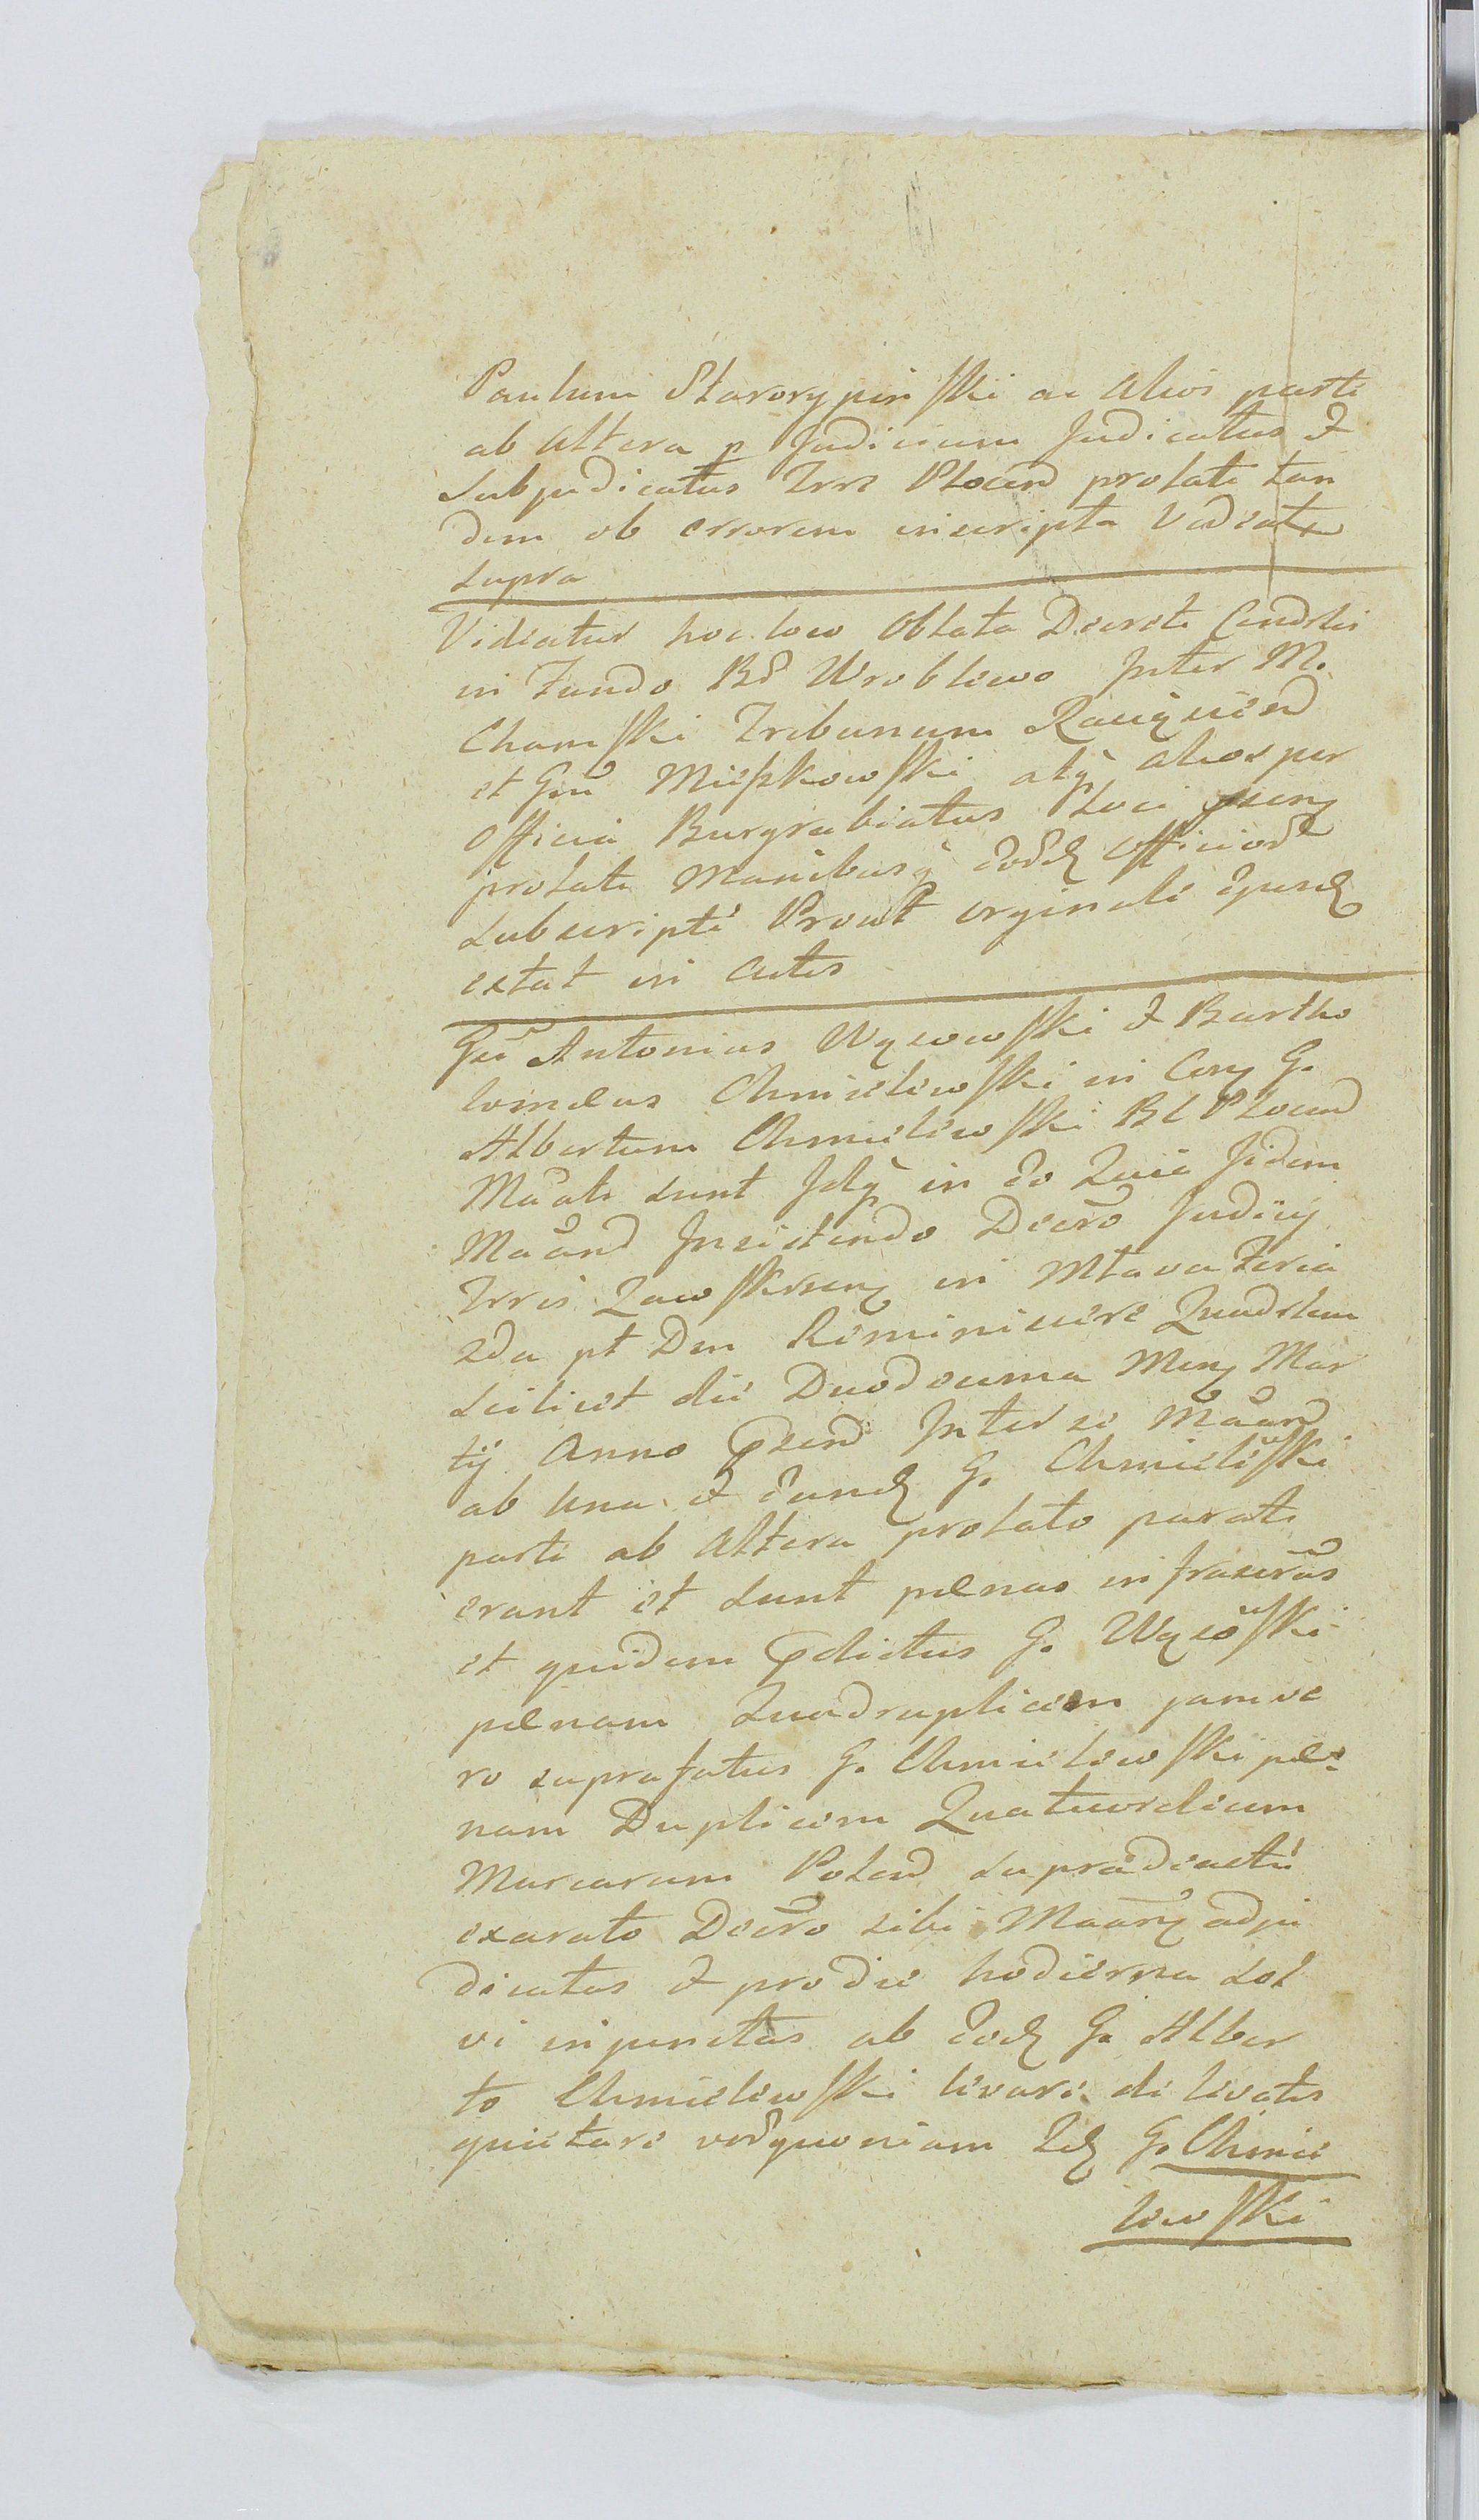 Paulum Starorypinski ac alios parte
ab altera p Judicium Judicatus &
Subjudicatus Trre Plocen prolati tan
dem ob errorem inscripta Videatur
supra
Videatur hoc loco Oblata Decreti Condlis
in Fundo Bd Wroblewo Inter M.
Chamski Tribunum Raciązien
et Gnu Mieszkowski atq alios per
Officia Burgrabiatus Loci
prolati Manibusq eord Officior
Subscripti Prout orginale ejusd
extat in Actis
Gsi Antonius Wysowski & Bartho
lomeus Chmielewski in Con G.
Albertum Chmielewski BC Plocen
Maati sunt Idq in eo Quia Iidem
Maand Insistendo Decro Judicij
Trris Zawskren in Mlava Feria
2da pt Dm Reminiscere Quadrlem
scilicet die Duodecima Men Mar
tij Anno psen Inter se Maand
ab una & eund G. Chmielewski
parte ab altera prolato parati
erant et sunt penas infrascras
et quidem pdictus G. Wysowski
penam Quadruplicem jam ve
ro suprafatus G. Chmielewski pe=
nam Duplicem Quatuordecim
Marcarum Polon supradicto
exarato Decro sibi Maan adju
dicatas & pro die hodierna Sol
vi injunctas ab eod G. Alber
to Chmielewski levare de levatis
quietare vod quoniam Id G. Chmie
lewski